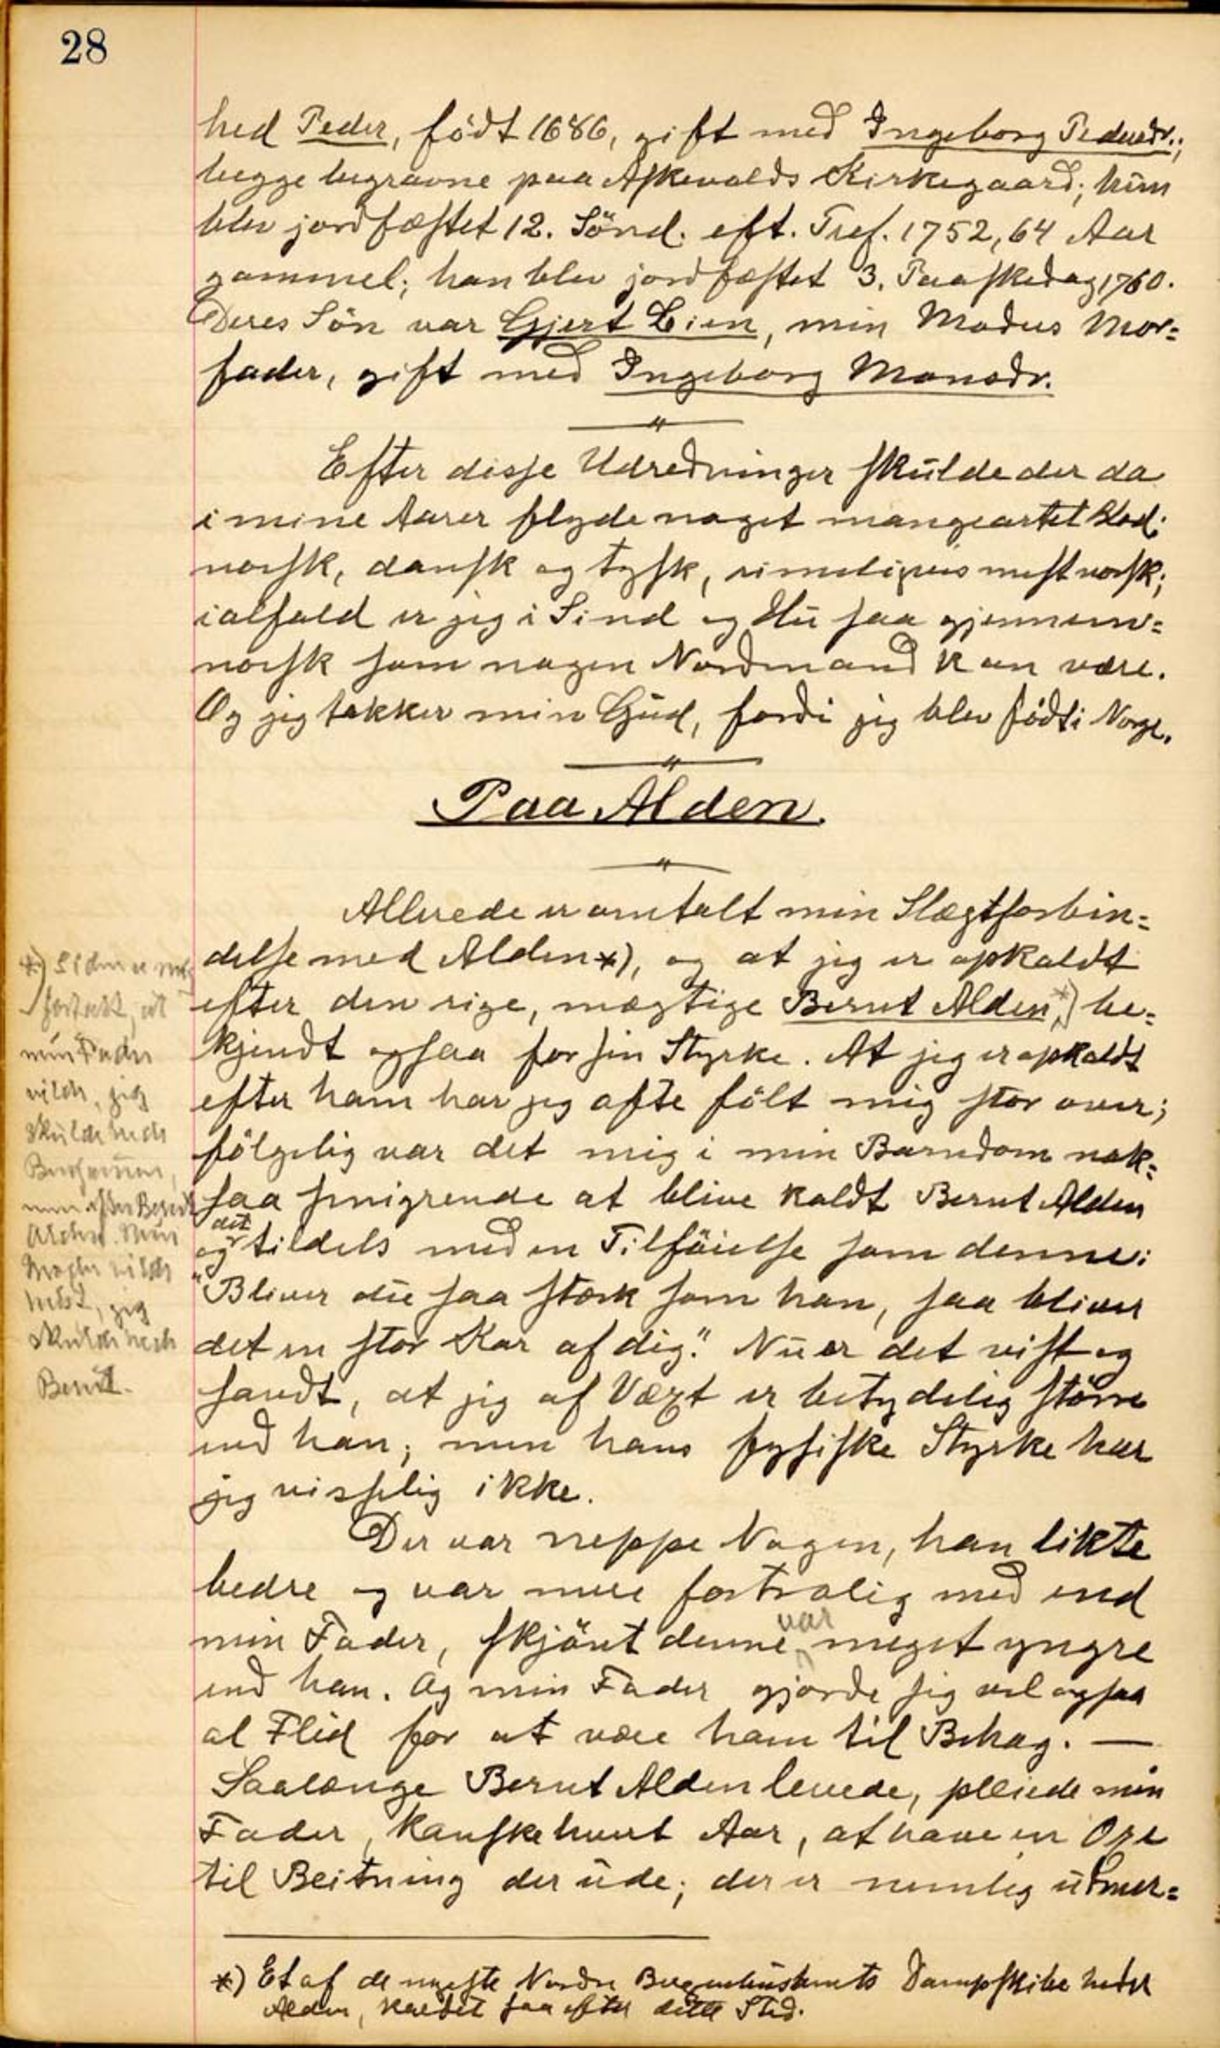 28
hed Peder, født 1686, gift med Ingeborg Pedersdr.;
begge begravne paa Askevolds Kirkegaard; hun
blev jordfæstet 12. Sönd. eft. Tref. 1752, 64 Aar
gammel; han blev jordfæstet 3. Paaskedag 1760.
Deres Sön var Gjert Lien, min Moders Mor=
fader, gift med Ingeborg Monsdr.
Efter disse Udredninger skulde der da
i mine Aarer flyde noget mangeartet Blod:
norsk, dansk og tysk, rimeligvis mest norsk;
ialfald er jeg i Sind og Hu saa gjennem=
norsk som nogen Nordmand kan være.
Og jeg takker min Gud, fordi jeg blev född i Norge.
Paa Alden.
Allerede er omtalt min Slægtforbin=
delse med Alden*), og at jeg er opkaldt
efter den rige, mægtige Bernt Alden,*) be=
kjendt ogsaa for sin Styrke. At jeg er opkaldt
efter ham har jeg ofte fölt mig stor over;
fölgelig var det mig i min Barndom nok=
saa smigrende at blive kaldt Bernt Alden
og det tildels med en Tilföielse som denne:
"Bliver du saa stærk som han, saa bliver
det en stor Kar af dig." Nu er det vist og
sandt, at jeg af Væxt er betydelig större
end han; men hans fysiske Styrke har
jeg visselig ikke.
Der var neppe Nogen, han likte
bedre og var mere fortrolig med end
min Fader, skjönt denne var meget yngre
end han. Og min Fader gjorde sig vel ogsaa
al Flid for at være ham til Behag. —
Saalænge Bernt Alden levede, pleiede min
Fader, kanske hvert Aar, at have en Oxe
til Beitning der ude; der er nemlig udmær=
*) Et af de nyeste Nordre Bergenhusamts Dampskibe heder
Alden, kaldet saa efter dette Sted.
*) Siden er mig
fortalt, at
min Fader
vilde, jeg
skulde hede
men efter Bernt
Alden. Min
Moder vilde
helst, jeg
skulde hede
Bernt.